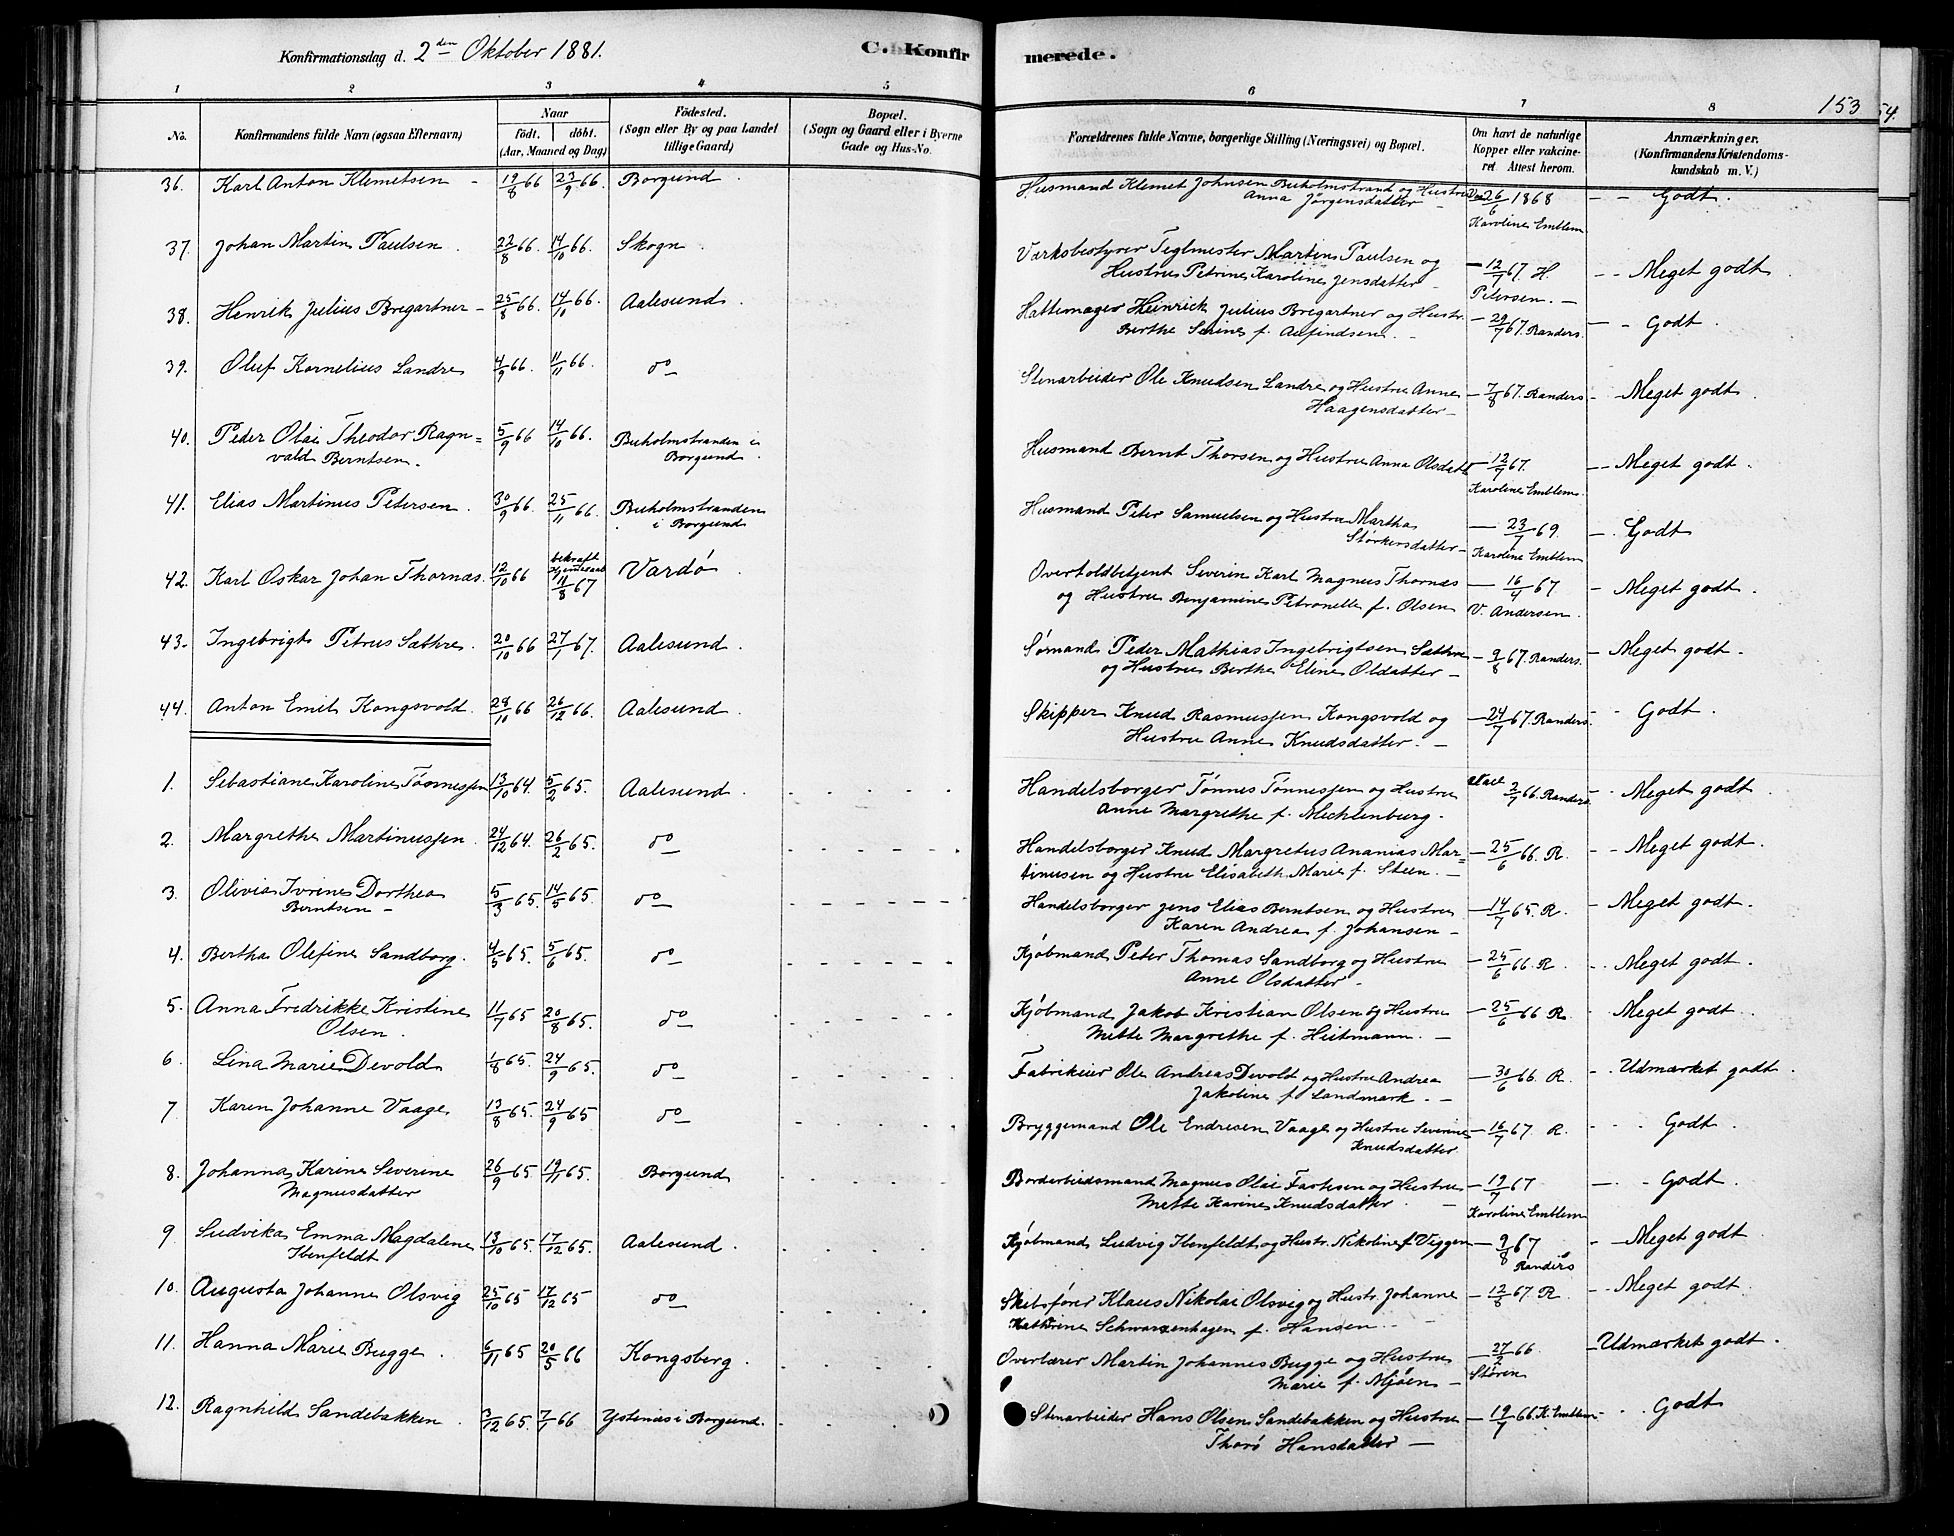 Konfirmationsdag d. 2den Oktober 1881.
C. Konfirmerede.
153
54.
1 2 3 4 5 6 7 8
No.
Konfirmandens fulde Navn (ogsaa Efternavn)
Naar
födt. döbt.
(Aar, Maaned og Dag)
Födested.
(Sogn eller By og paa Landet
tillige Gaard)
Bopæl.
(Sogn og Gaard eller i Byerne
Gade og Hus-No.
Forældrenes fulde Navne, borgerlige Stilling (Næringsvei) og Bopæl.
Om havt de naturlige
Kopper eller vakcine-
ret. Attest herom.
Anmærkninger.
(Konfirmandens Kristendoms-
kundskab m. V.)
36. Karl Anton Klemetsen - 19/8 66 23/9 66. Borgund . Husmand Klemet Johnsen Buholmstrand og Hustru 26/6 1868 - - Godt.
Anna Jørgensdatter - Karoline Emblem
37. Johan Martin Paulsen . 22/8 66. 14/10 66. Skogn . Værksbestyrer Teglmester Martin Paulsen og - 12/7 67 H. -- Meget godt
Hustru Petrine Karoline Jensdatter - Petersen. -
38. Henrik Julius Bregartner - 25/8 66. 14/10 66. Aalesund . Hattemager Heinrick Julius Bregartner og Hustr. - 29/7 67. Randers. - - Godt .
Berthe Serine f. -
39. Oluf Kornelius Landre 4/9 66. 11/11 66. do Stenarbeider Ole Knudsen Landre og Hustru Anne - 7/8 67. Randers - Meget godt .
Haagensdatter -
40. Peder Olai Theodor Ragn= 5/9 66 14/10 66. Buholmstranden i Husmand Bernt Thorsen og Hustru Anna Olsdatt - 12/7 67. -- Meget godt .
vald Berntsen. Borgund . Karoline Emblem.
41. Elias Martinus Petersen . 30/9 66 25/11 66. Buholmstranden Husmand Peter Samuelsen og Hustru Martha - 23/7 69. -. Godt
i Borgund Størkersdatter - Karoline Emblem
42. Karl Oskar Johan Thornæs. 12/10 66 bekræft. Hjemmedaab 11/8 67 Vardø . Overtoldbetjent Severin Karl Magnus Thornæs - 16/4 67 - Meget godt .
og Hustru Benjamine Petronelle f. Olsen V. Andersen.
43. Ingebrigt Petrus Sæthre. 20/10 66 27/1 67. Aalesund . Sømand Peder Mathias Ingebrigtsen Sæthre - 9/8 67. Randers. - Meget godt .
og Hustru Berthe Eline Oldatter -
44. Anton Emil Kongsvold . 28/10 66 26/12 66. Aalesund . Skipper Knud Rasmussen Kongsvold og - 24/7 67. Randers. - Godt .
Hustru Anne Knudsdatter. -
1. Sebastiane Karoline Tønnessen 13/10 64. 5/2 65. Aalesund . Handelsborger Tønnes Tønnessen og Hustru Vacc 2/7 66. Randers - Meget godt .
Anne Margrethe f. Mechlenburg.
2. Margrethe Martinussen . 24/12 64. 26/2 65. do Handelsborger Knud Margretus Ananias Mar= - 25/6 66. R. - - Meget godt .
tinusen og Hustru Elisabeth Marie f. Steen. -
3. Olivia Ivrine Dorthea 5/3 65. 14/5 65. do Handelsborger Jens Elias Berntsen og Hustru - 14/7 65. R. - Meget godt .
Berntsen - Karen Andrea f. Johansen -
4. Bertha Olefine Sandborg. 4/5 65. 5/6 65. do Kjøbmand Peter Thomas Sandborg og Hustru - 25/6 66. R. -. Meget godt .
Anne Olsdatter -
5. Anna Fredrikke Kristine 11/7 65 20/8 65. do Kjøbmand Jakob Kristian Olsen og Hustru - 25/6 66 R. - Meget godt .
Olsen . Mette Margrethe f. Heitmann. -
6. Lina Marie Devold 1/8 65. 24/9 65. do Fabrikeier Ole Andreas Devold og Hustru Andrea - 30/6 66. R. - . Udmærket godt .
Jakoline f. Landmark. -
7. Karen Johanne Vaage 13/8 65. 24/9 65 do Bryggemand Ole Endresen Vaage og Hustru Severine - 16/7 67. R. - - . Godt .
Knudsdatter
8. Johanna Karine Severine 26/9 65. 19/11 65. Borgund Bordarbeidsmand Magnus Olai og Hustru - 19/7 67 - . - Godt .
Magnusdatter Mette Karine Knudsdatter . - Karoline Emblem
9. Ludvika Emma Magdalene 13/10 65. 17/12 65. Aalesund . Kjøbmand Ludvig Ibenfeldt og Hustr. Nikoline f. Viggen - 9/8 67 - Meget godt .
Ibenfeldt Randers
10. Augusta Johanne Olsvig 25/10 65 17/12 65 do Skibsfører Klaus Nikolai Olsvig og Hustr. Johanne - 12/8 67. R. - . Meget godt .
Kathrine Schwarzenhagen f. Hansen. -
11. Hanna Marie Bugge . 6/11 65 20/5 66 Kongsberg . Overlærer Martin Johannes Bugge og Hustru - 27/2 66. - Udmærket godt .
Marie f. Mjøen - Støren
12. Ragnhild Sandebakken . 3/12 65. 7/1 66 Ystenæs i Borgund. Stenarbeider Hans Olsen Sandebakken og Hustru - 19/7 66. K. Emblem - . Godt
Thorø Hansdatter -